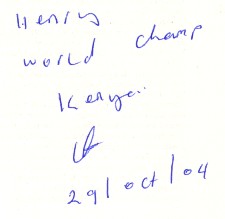 Henry
world champ
Kenya..
29/oct/04